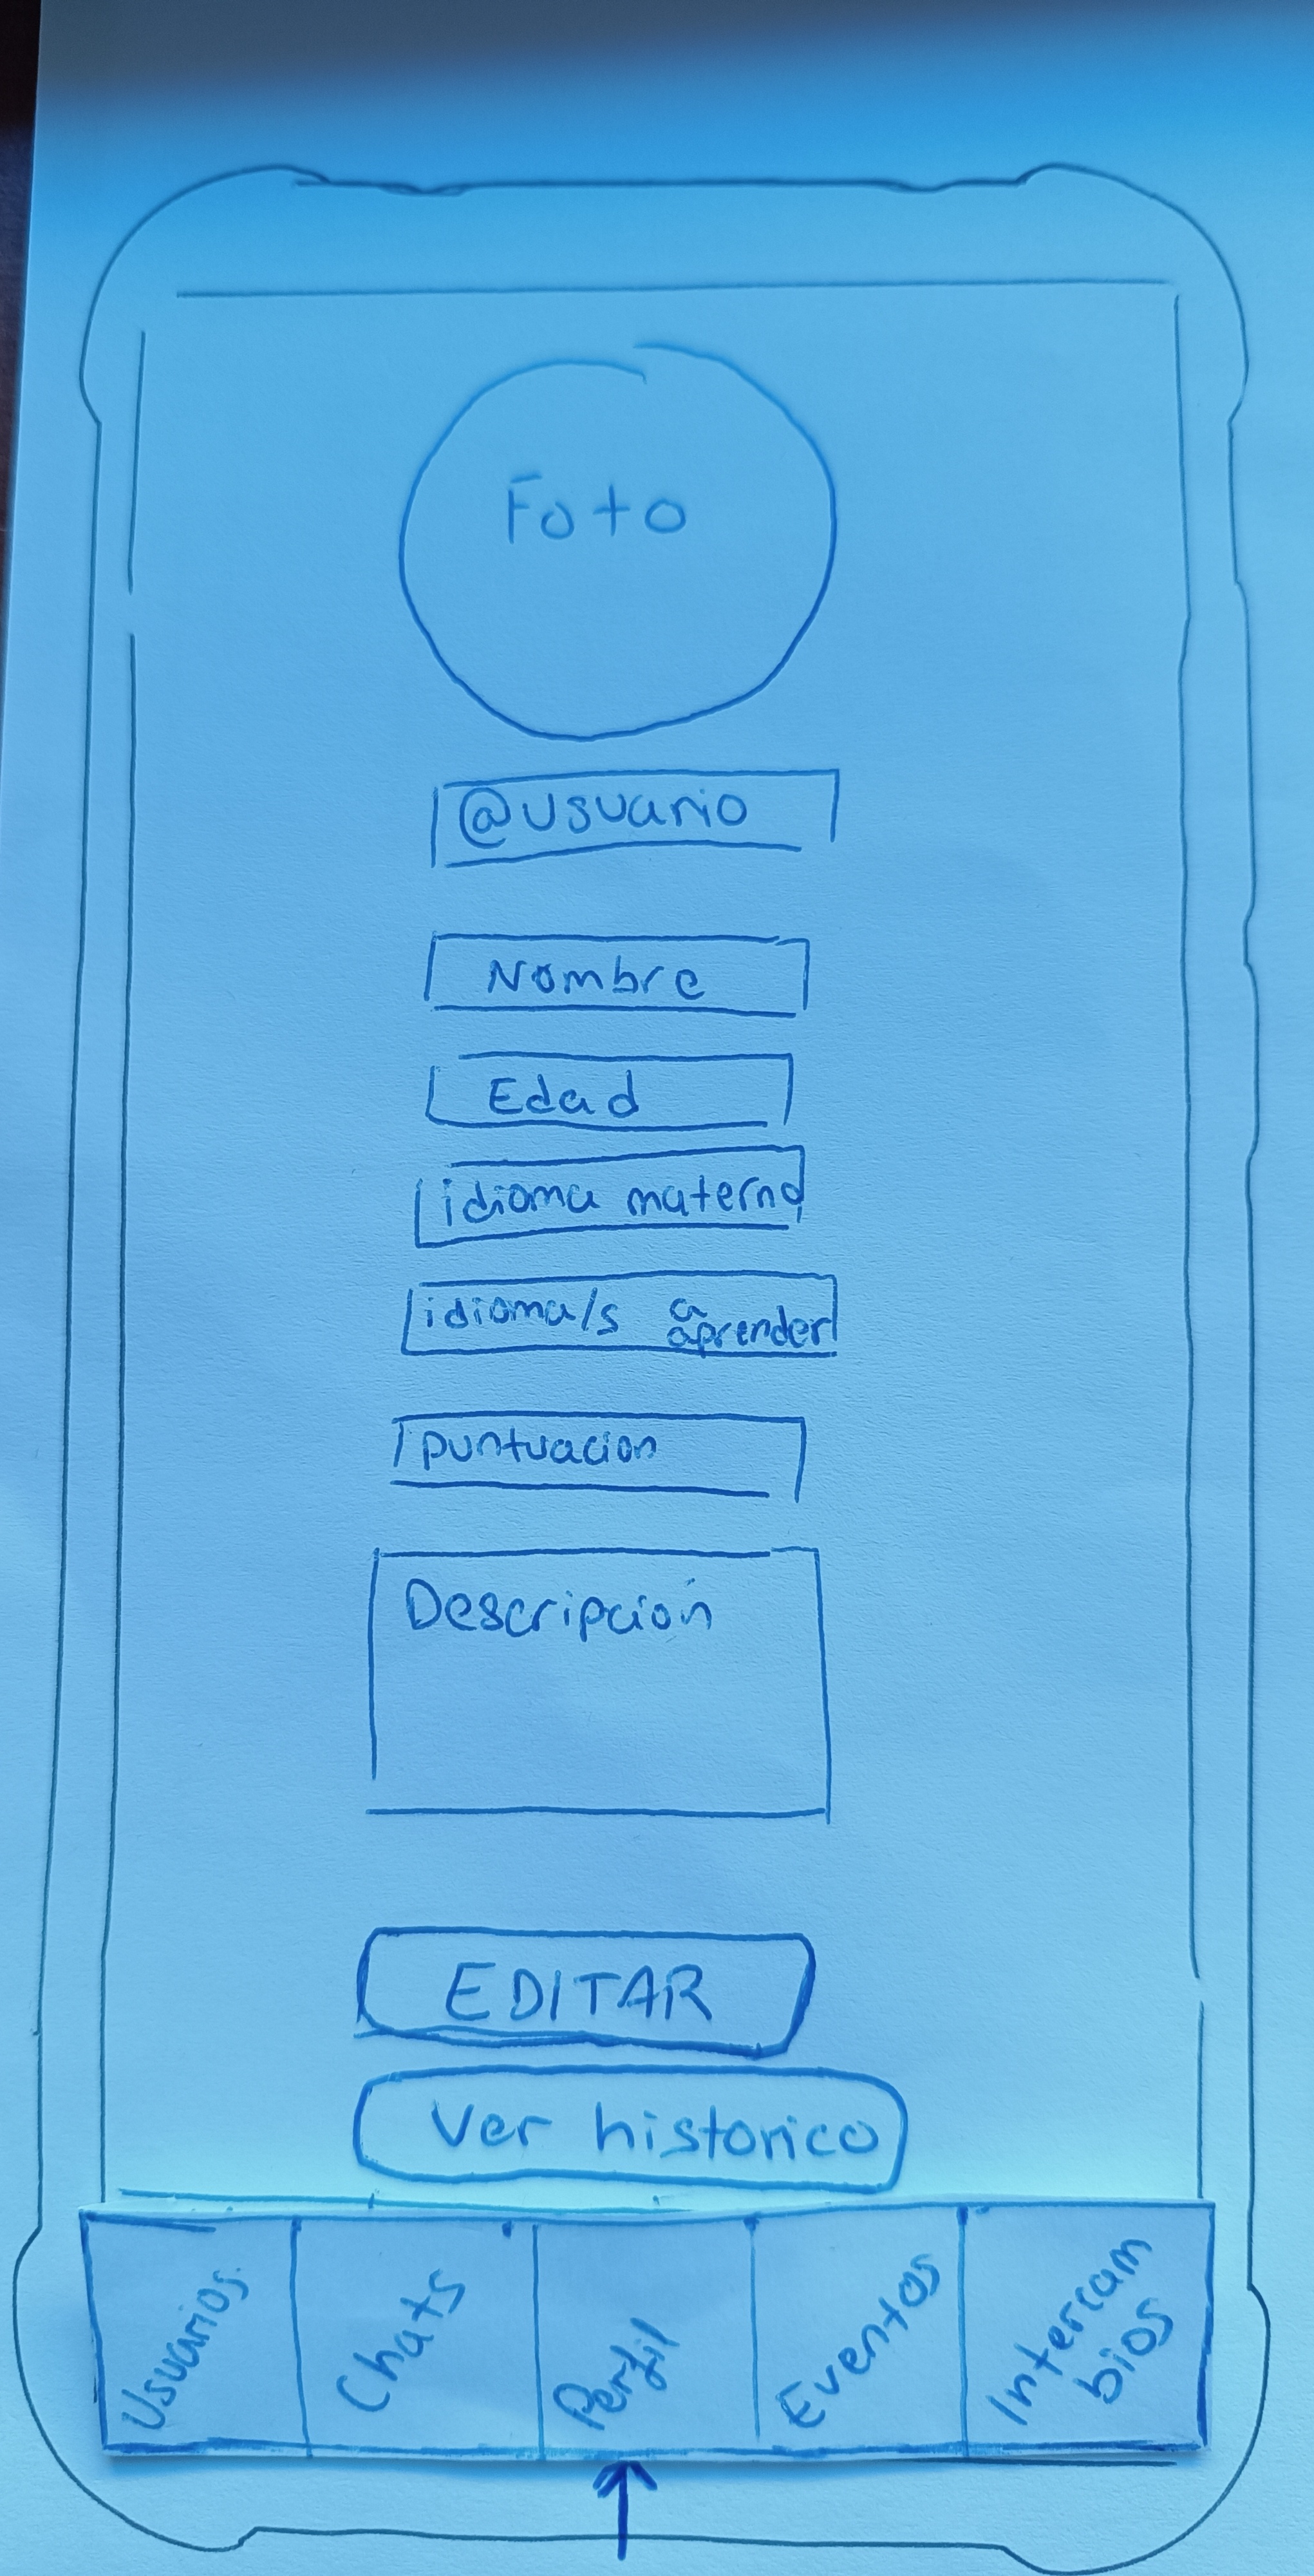 Foto
@usuario
Nombre
Edad
idioma materno
idioma/s a
aprender
puntuacion
Descripción
EDITAR
Ver historico
Usuarios
Chats
Perfil
Eventos
Intercam
bios